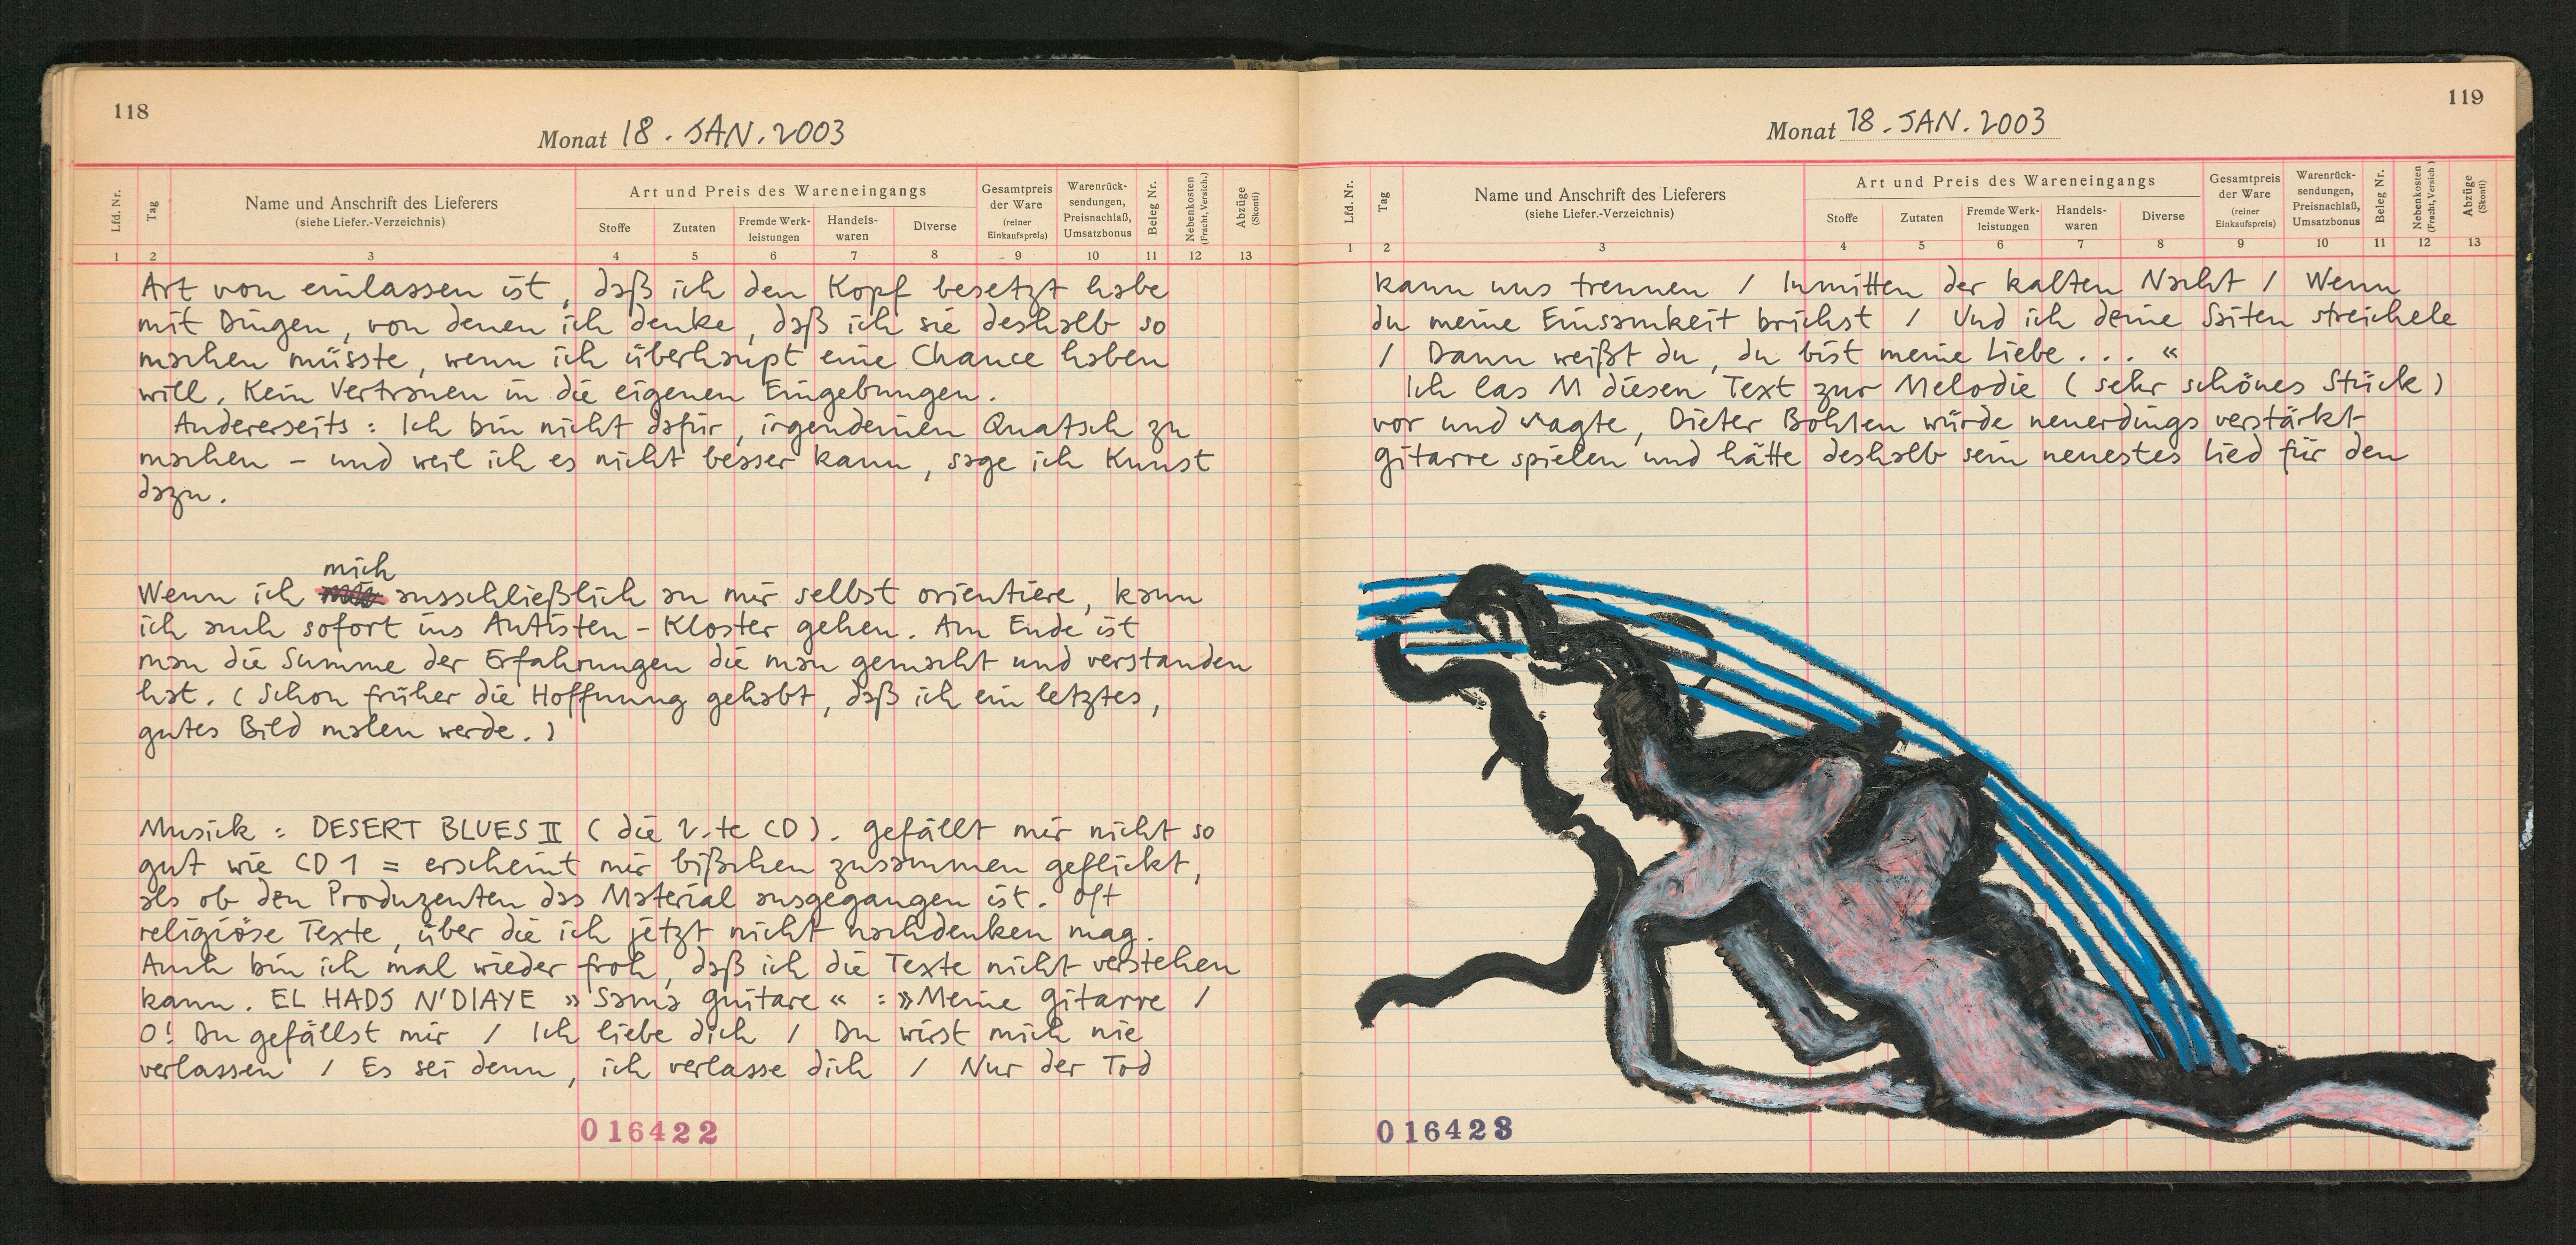 118
Monat 18. JAN. 2003
Lfd. Nr.
Tag
Name und Anschrift des Lieferers
(siehe Liefer.-Verzeichnis)
Art und Preis des Wareneingangs
Stoffe
Zutaten
Fremde Werk-
leistungen
Handels-
waren
Diverse
Gesamtpreis
der Ware
(reiner
Einkaufspreis)
Warenrück-
sendungen,
Preisnachlaß,
Umsatzbonus
Beleg Nr.
Nebenkosten
(Fracht, Versich.)
Abzüge
(Skonti)
1 2 3 4 5 6 7 8 9 10 11 12 13
Art von einlassen ist, daß ich den Kopf besetzt habe
mit Dingen, von denen ich denke, daß ich sie deshalb so
machen müsste, wenn ich überhaupt eine Chance haben
will. Kein Vertrauen in die eigenen Eingebungen.
Andererseits: Ich bin nicht dafür, irgendeinen Quatsch zu
machen – und weil ich es nicht besser kann, sage ich Kunst
dazu.
mich
Wenn ich ausschließlich an mir selbst orientiere, kann
ich auch sofort ins Autisten-Kloster gehen. Am Ende ist
man die Summe der Erfahrungen die man gemacht und verstanden
hat. (Schon früher die Hoffnung gehabt, daß ich ein letztes,
gutes Bild malen werde.)
Musick: DESERT BLUES II (die 2.te CD). Gefällt mir nicht so
gut wie CD 1 = erscheint mir bißchen zusammen geflickt,
als ob den Produzenten das Material ausgegangen ist. Oft
religiöse Texte, über die ich jetzt nicht nachdenken mag.
Auch bin ich mal wieder froh, daß ich die Texte nicht verstehen
kann. EL HADJ N'DIAYE »Sama guitare« : »Meine Gitarre /
O! Du gefällst mir / Ich liebe dich / Du wirst mich nie
verlassen / Es sei denn, ich verlasse dich / Nur der Tod
016422
119
Monat 18. JAN. 2003
Lfd. Nr.
Tag
Name und Anschrift des Lieferers
(siehe Liefer.-Verzeichnis)
Art und Preis des Wareneingangs
Stoffe
Zutaten
Fremde Werk-
leistungen
Handels-
waren
Diverse
Gesamtpreis
der Ware
(reiner
Einkaufspreis)
Warenrück-
sendungen,
Preisnachlaß,
Umsatzbonus
Beleg Nr.
Nebenkosten
(Fracht, Versich.)
Abzüge
(Skonti)
1 2 3 4 5 6 7 8 9 10 11 12 13
kann uns trennen / Inmitten der kalten Nacht / Wenn
du meine Einsamkeit brichst / Und ich deine Saiten streichele
/ Dann weißt du, du bist meine Liebe . . . «
Ich las M diesen Text zur Melodie (sehr schönes Stück)
vor und sagte, Dieter Bohlen würde neuerdings verstärkt
Gitarre spielen und hätte deshalb sein neuestes Lied für den
016423